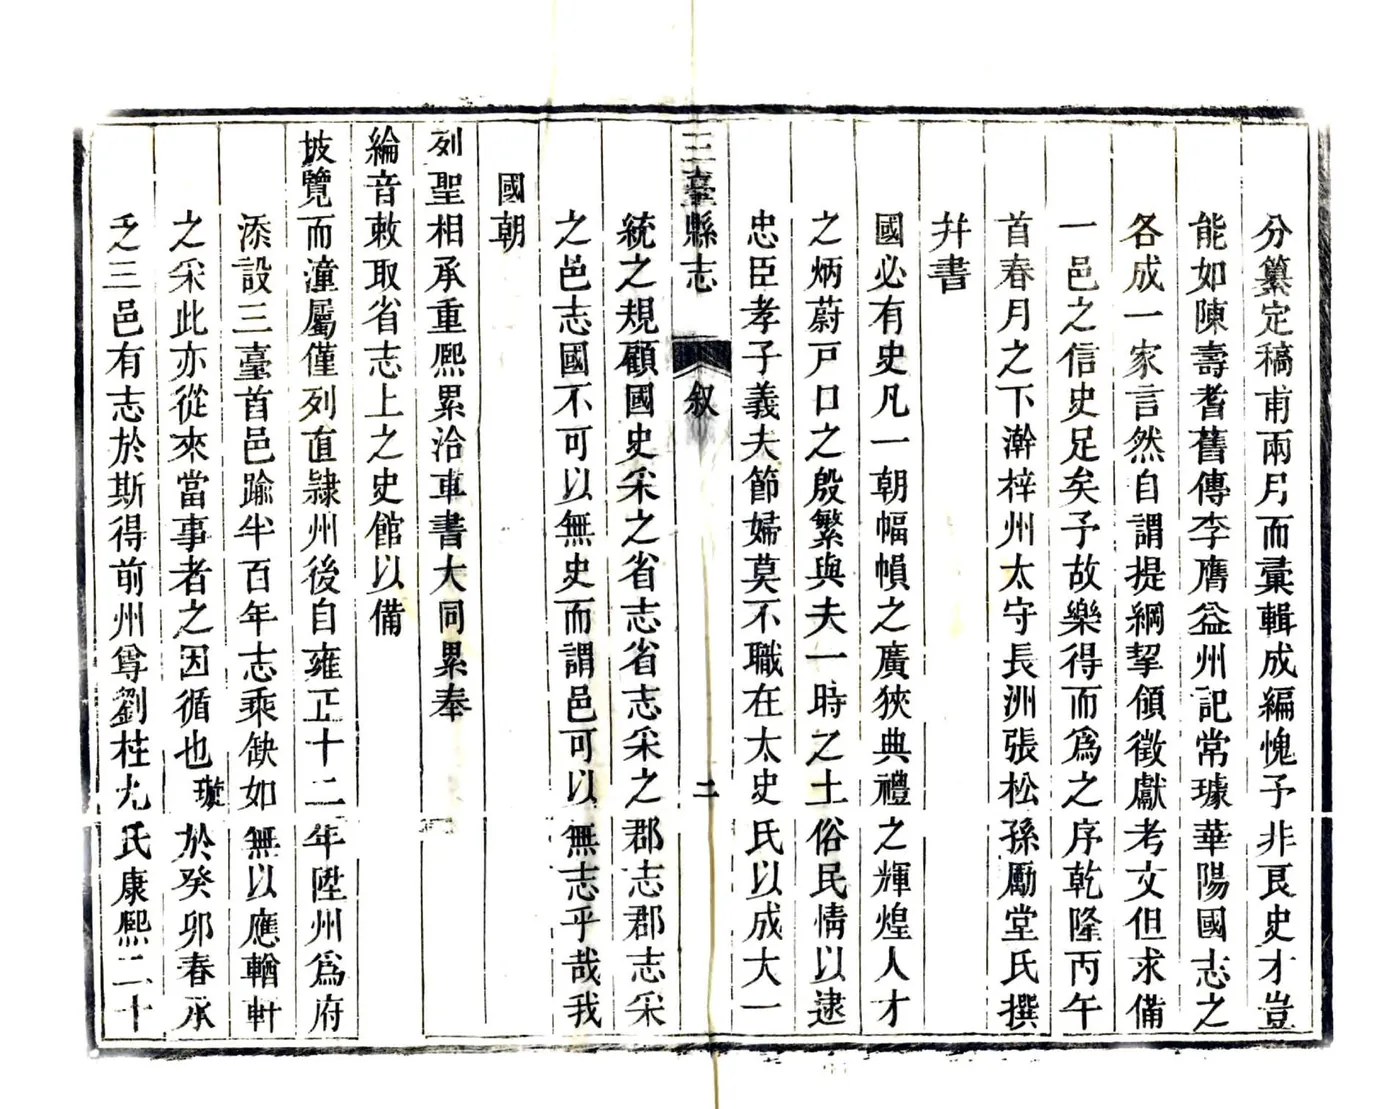 分纂定稿甫兩月而彙輯成編愧予非良史才豈
能如陳壽耆舊傳李膺益州記常璩華陽國志之
各成一家言然自謂提綱挈領徵獻考文但求備
一邑之信史足矣予故樂得而爲之序乾隆丙午
首春月之下澣梓州太守長洲張松孫勵堂氏撰
幷書
國必有史凡一朝幅幀之廣狹典禮之輝煌人才
之炳蔚戸口之殷繁與夫一時之土俗民情以逮
忠臣孝子義夫節婦莫不職在太史氏以成大一
三臺縣志
叙
二
統之規顧國史采之省志省志采之郡志郡志采
之邑志國不可以無史而謂邑可以無志乎哉我
國朝
列聖相承重熙累洽車書大同累奉
綸音敕取省志上之史館以備
披覽而潼屬僅列直隷州後自雍正十二年陞州爲府
添設三臺首邑踰半百年志乘缺如無以應輶軒
之采此亦從來當事者之因循也璇於癸卯春承
乏三邑有志於斯得前州尊劉桂尢氏康熙二十